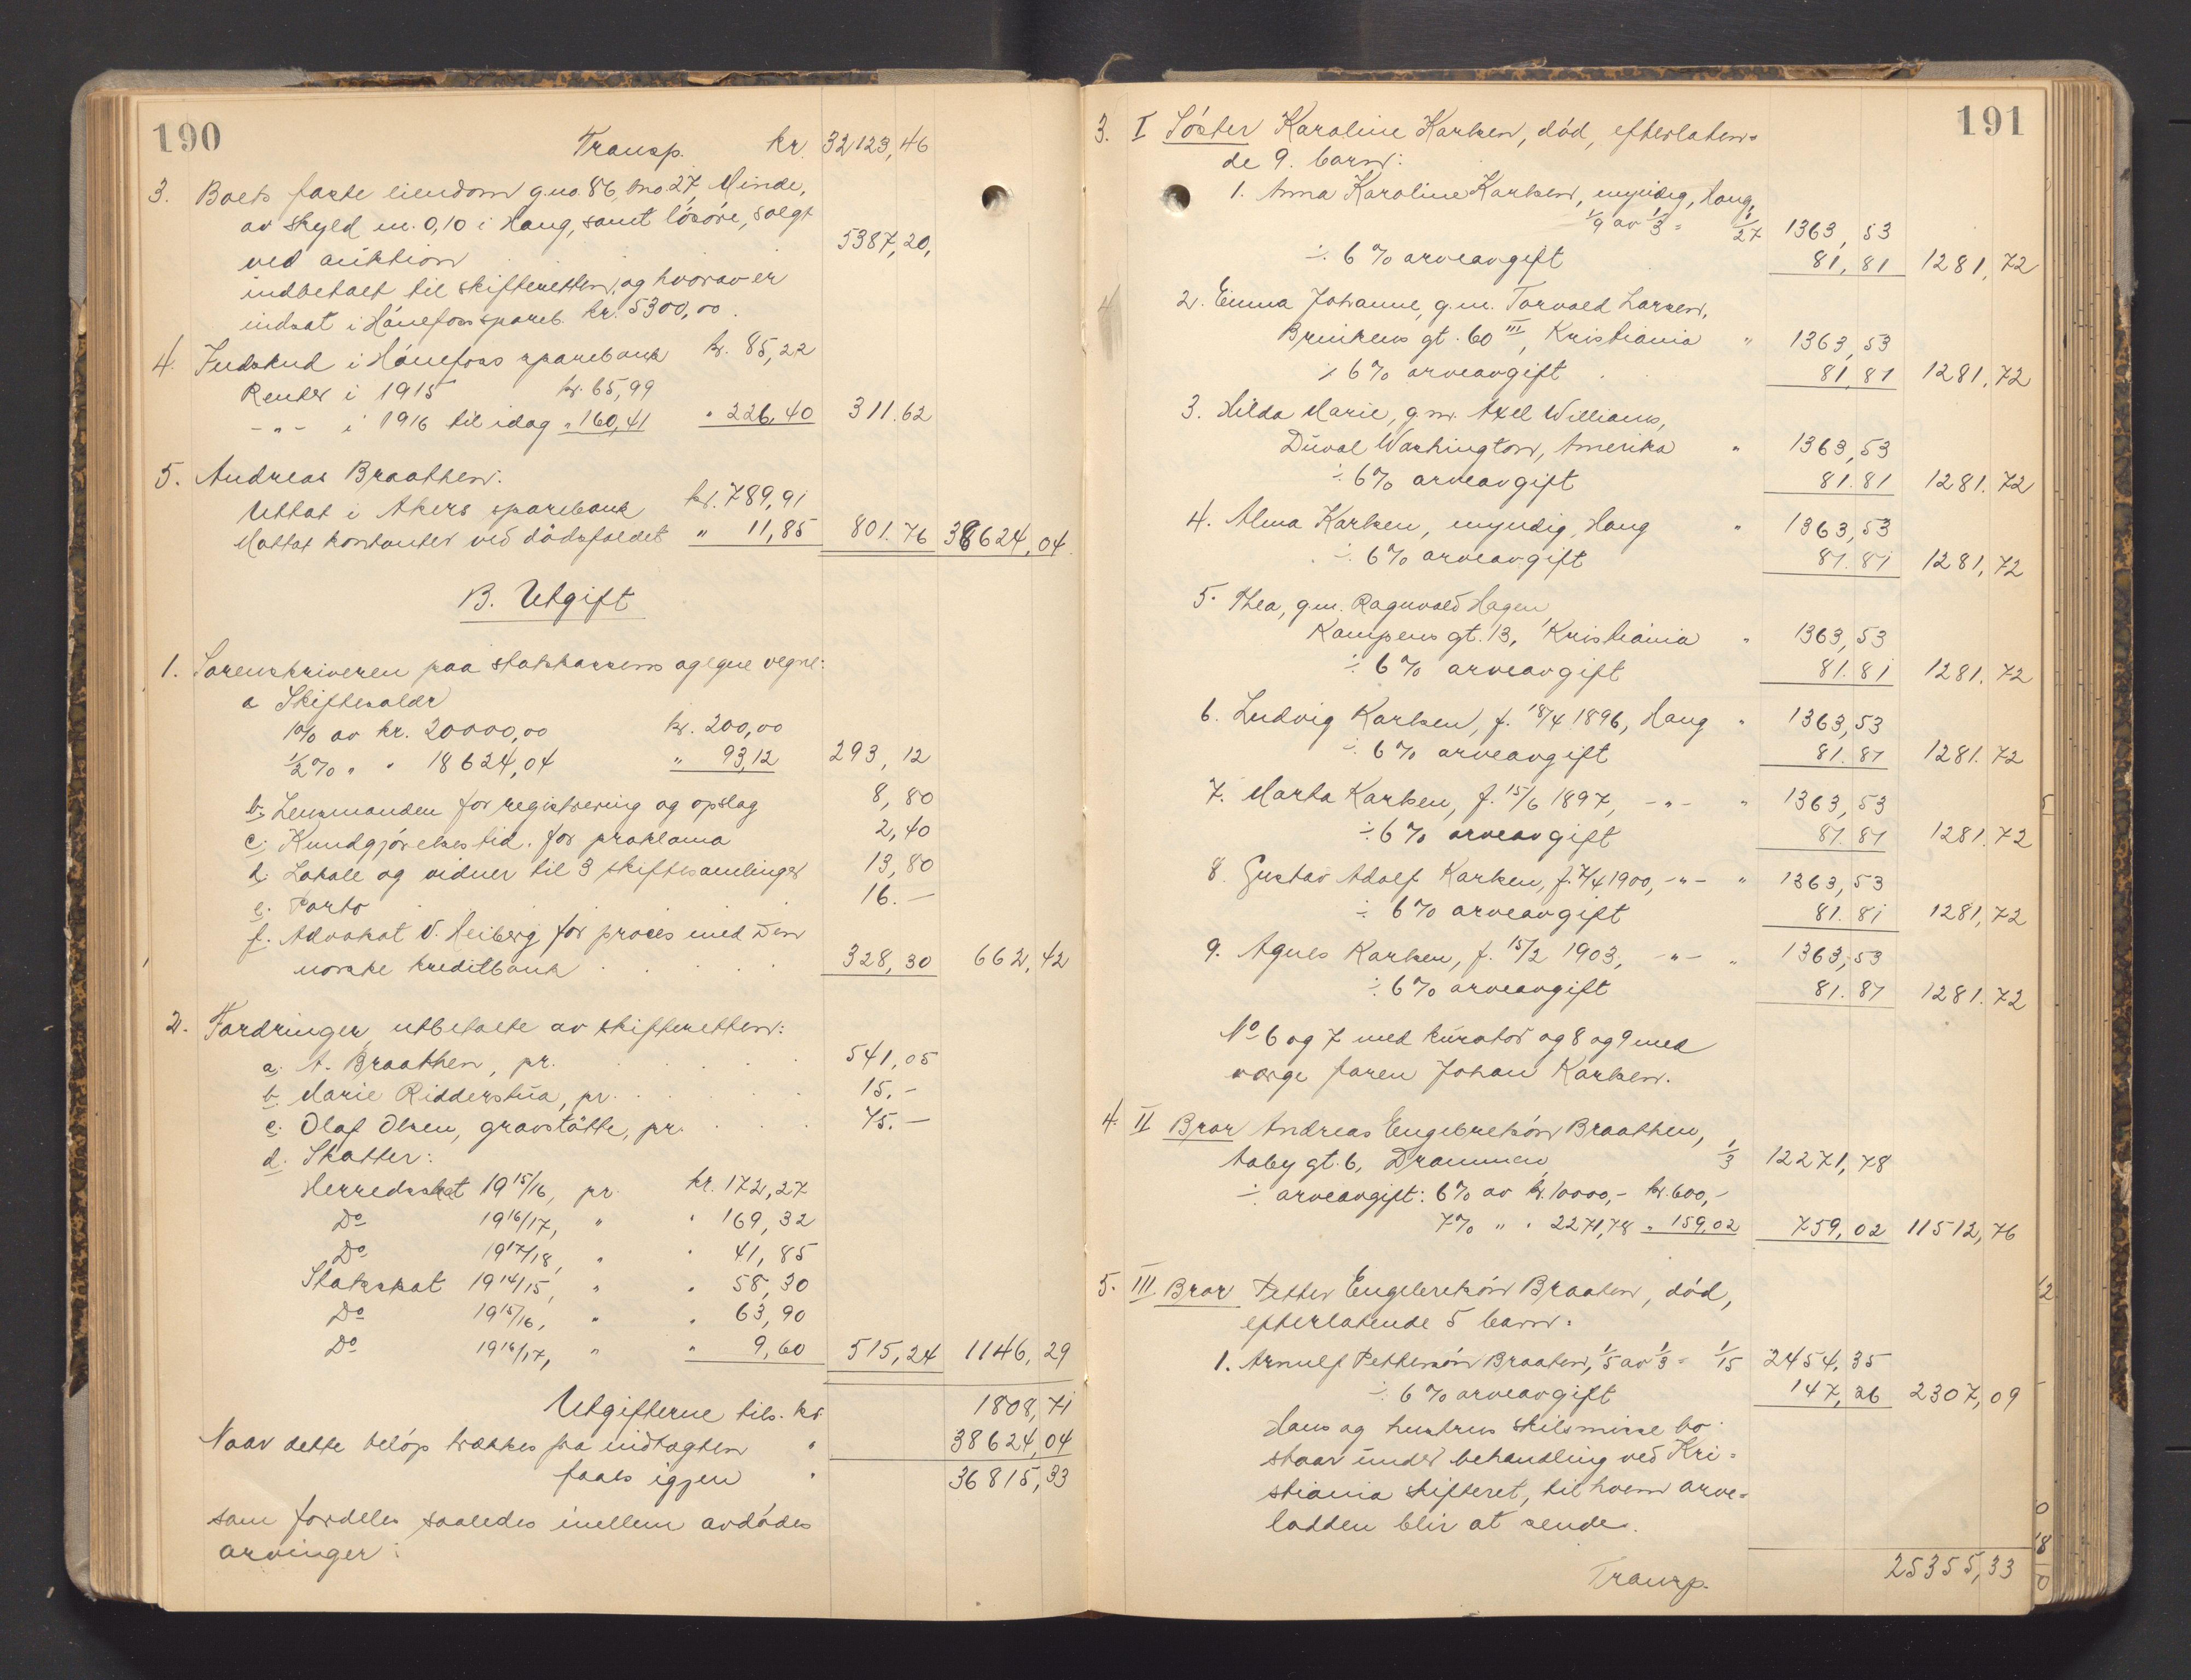 190
Transp. kr. 32123,46
3. Boets faste eiendom gno. 86, bno. 27, Minde,
av skyld m. 0,10 i Haug, samt løsøre, solgt
ved auktion 5387,20,
indbetalt til skifteretten, og hvorav er
indsat i Hønefoss spareb. kr. 5300,00.
4. Indskud i Hønefoss sparebank kr. 85,22
Renter i 1915 kr. 65,99
-"- i 1916 til idag " 160,41 " 226,40 311.62
5. Andreas Braathen:
Uttat i Akers sparebank kr. 789,91
Mottat kontanter ved dødsfaldet " 11,85 801.76 38624,04.
B. Utgift
1. Sorenskriveren paa statskassens og egne vegne:
a Skiftesalær
1% av kr. 20000,00 kr. 200,00
1/2% " " 18624,04 " 93,12 293,12
b. Lensmanden for registrering og opslag 8,80
c. Kundgjørelsestid. for proklama 2,40
d. Lokale og vidner til 3 skiftesamlinger 13,80
e. Porto 16.—
f. Advokat V. Heiberg for proces med Den
norske kreditbank 328,30 662,42
2. Fordringer, utbetalte av skifteretten:
a. A. Braathen, pr. 541,05
b. Marie Ridderstua, pr. 15.-
c. Olaf Olsen, gravstøtte, pr. 75.—
d. Skatter:
Herredsskat 1915/16, pr. kr. 172,27
Do 1916/17, " " 169,32
Do 1917/18, " " 41,85
Statsskat 1914/15, " " 58,30
Do 1915/16, " " 63,90
Do 1916/17, " " 9,60 515,24 1146,29
Utgifterne tils. kr. 1808,71
Naar dette beløp trækkes fra indtægten " 38624,04
faaes igjen " 36815,33
som fordeles saaledes mellem avdødes
arvinger:
191
3. I Søster Karoline Karlsen, død, efterlaten=
de 9. barn:
1. Anna Karoline Karlsen, myndig, Haug,
1/9 av 1/3 = 1/27 1363,53
÷ 6% arveavgift 81,81 1281,72
2. Emma Johanne, g.m. Torvald Larsen,
Brinkens gt. 60 III, Kristiania " 1363,53
÷ 6% arveavgift 81,81 1281,72
3. Hilda Marie, g.m. Axel Williams,
Duval Washington, Amerika " 1363,53
÷ 6% arveavgift 81.81 1281.72
4. Alma Karlsen, myndig, Haug " 1363,53
÷ 6% arveavgift 81.81 1281,72
5. Thea, g.m. Ragnvald Hagen,
Kampens gt. 13, Kristiania " 1363,53
÷ 6% arveavgift 81.81 1281.72
6. Ludvig Karlsen, f. 18/4 1896, Haug " 1363,53
÷ 6% arveavgift 81.81 1281.72
7. Marta Karlsen, f. 15/6 1897, -"- " 1363,53
÷ 6% arveavgift 81.81 1281.72
8. Gustav Adolf Karlsen, f. 7/4 1900, -"- " 1363,53
÷ 6% arveavgift 81.81 1281,72
9. Agnes Karlsen, f. 15/2 1903, -"- " 1363,53
÷ 6% arveavgift 81.81 1281.72
No 6 og 7 med kurator og 8 og 9 med
verge faren Johan Karlsen.
4. II Bror Andreas Engebretsøn Braathen,
Aaby gt. 6, Drammen, 1/3 12271,78
÷ arveavgift: 6% av kr. 10000,- kr. 600,-
7% " " 2271,78 " 159,02 759,02 11512,76
5. III. Bror Petter Engebretsøn Braaten, død,
efterlatende 5 barn:
1. Arnulf Pettersøn Braaten, 1/5 av 1/3 = 1/15 2454,35
÷ 6% arveavgift 147,26 2307,09
Hans og hustrus skilsmisse bo
staar under behandling ved Kri=
stiania skifteret, til hvem arve=
lodden blir at sende.
Transp. 25355,33